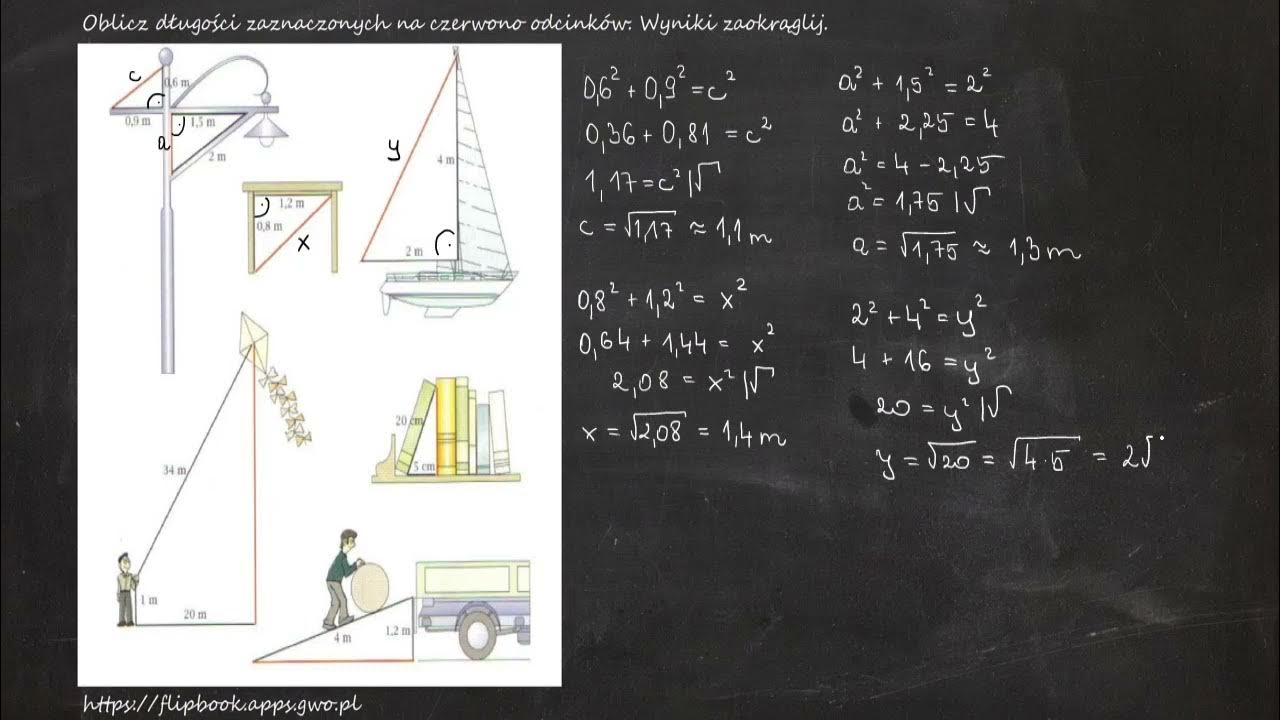 Oblicz długości zaznaczonych na czerwono odcinków. Wyniki zaokrąglij.
c
0,6 m
0,9 m
1,5 m
a
2 m
1,2 m
0,8 m
x
y
4 m
2 m
34 m
1 m
20 m
20 cm
5 cm
4 m
1,2 m
0,6² + 0,9² = c²
0,36 + 0,81 = c²
1,17 = c² |√
c = √1,17 ≈ 1,1 m
0,8² + 1,2² = x²
0,64 + 1,44 = x²
2,08 = x² |√
x = √2,08 = 1,4 m
a² + 1,5² = 2²
a² + 2,25 = 4
a² = 4 - 2,25
a² = 1,75 |√
a = √1,75 ≈ 1,3 m
2² + 4² = y²
4 + 16 = y²
20 = y² |√
y = √20 = √4·5 = 2√
https://flipbook.apps.gwo.pl